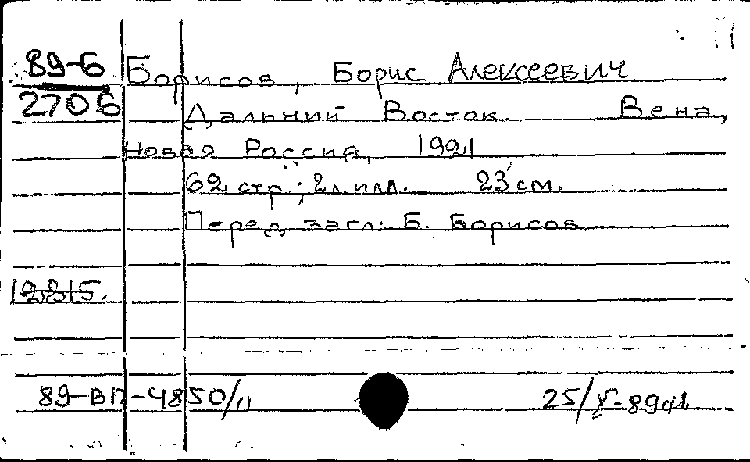 89-6 Борисов, Борис Алексеевич
2706 Дальний Восток. Вена,
Новая Россия, 1921
62 стр.; 2 л. илл. 23 см.
Перед загл.: Б. Борисов
89-ВП-4850/11 25/V-89